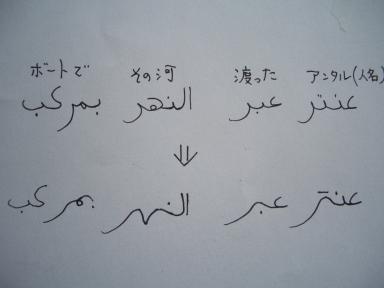 ボートで その河 渡った アンタル(人名)
عنتر عبر النهر بمركب
⇓
عنتر عبر النهر بمركب